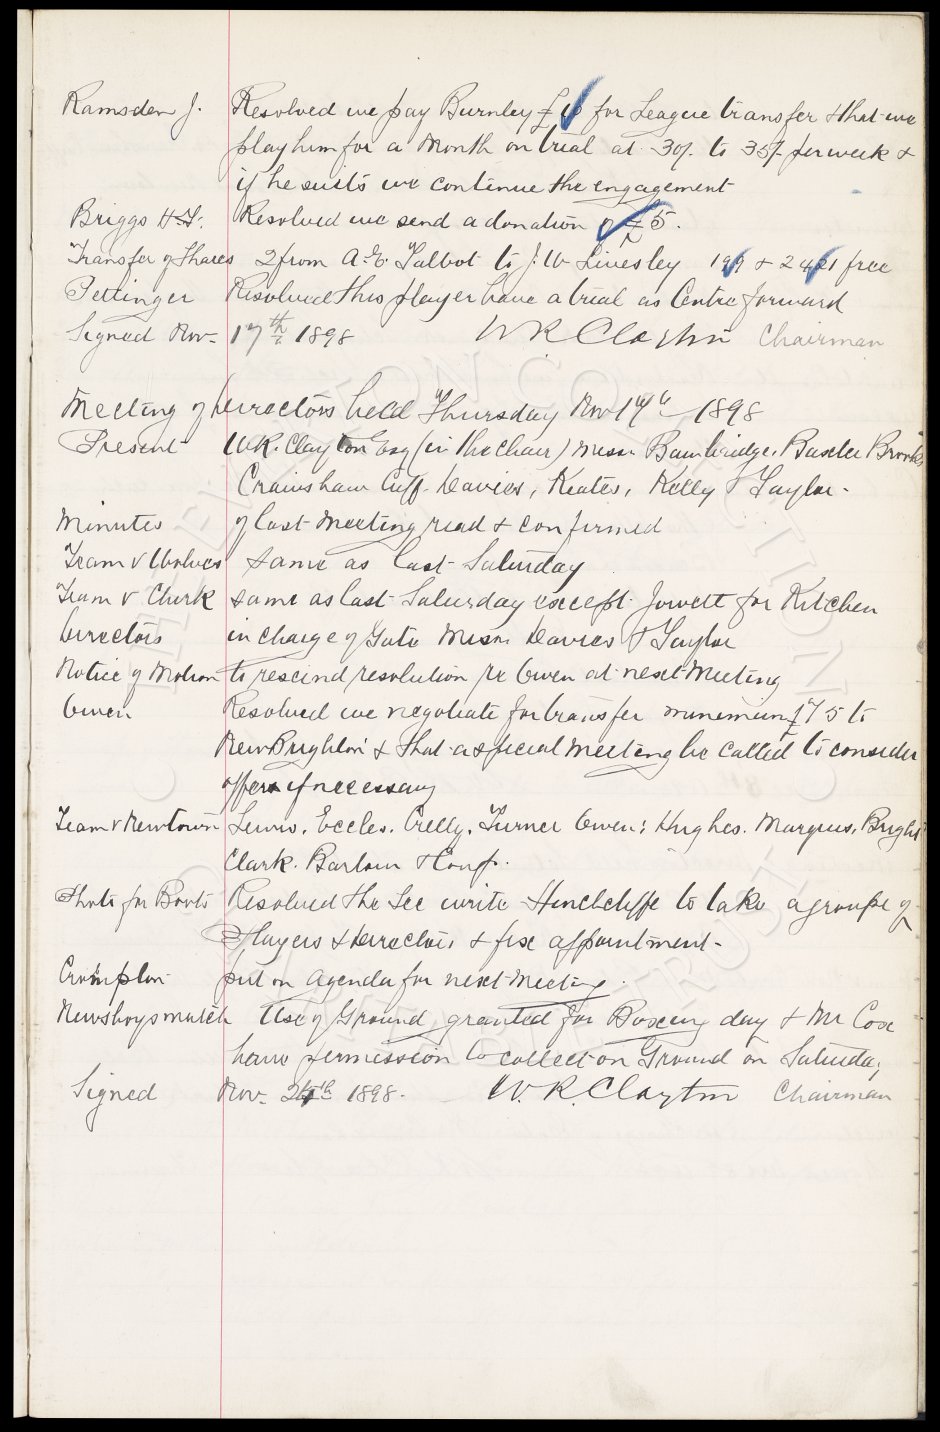 Ramsden J. Resolved we pay Burnley £10 for League transfer & that we
play him for a Month on trial at 30/- to 35/- per week &
if he suits we continue the engagement
Briggs H.F. Resolved we send a donation of £5.
Transfer of Shares 2 from A.E. Talbot to J.W. Livesley 1919 & 2421 free
Pettinger Resolved this player have a trial as Centre forward
Signed Nov. 17th 1898 W R Clayton Chairman
Meeting of Directors held Thursday Nov 17th 1898
Present W.R. Clayton Esq (in the Chair) Messrs Bainbridge, Baxter Brooks
Crawshaw Cuff. Davies, Keates, Kelly & Taylor.
Minutes of last meeting read & confirmed
Team v Wolves same as last Saturday
Team v Chirk same as last Saturday except Jowett for Kitchen
Directors in charge of Gate Messrs Davies & Taylor
Notice of Motion to rescind resolution re Owen at next Meeting
Owen Resolved we negotiate for transfer minimum £75 to
New Brighton & that a special meeting be called to consider
offers if necessary
Team v Newtown Lewis, Eccles, Crelly, Turner Owen, Hughes. Marqus, Bright
Clark. Barlow &
Photo for Boots Resolved the Sec write Hinchcliffe to take a groupe of
Players & Directors & fix appointment.
Crompton put on agenda for next Meeting.
Newsboys match Use of Ground granted for Boxing day & Mr Cox
have permission to collect on Ground on Saturday
Signed Nov. 24th 1898. W. R. Clayton Chairman